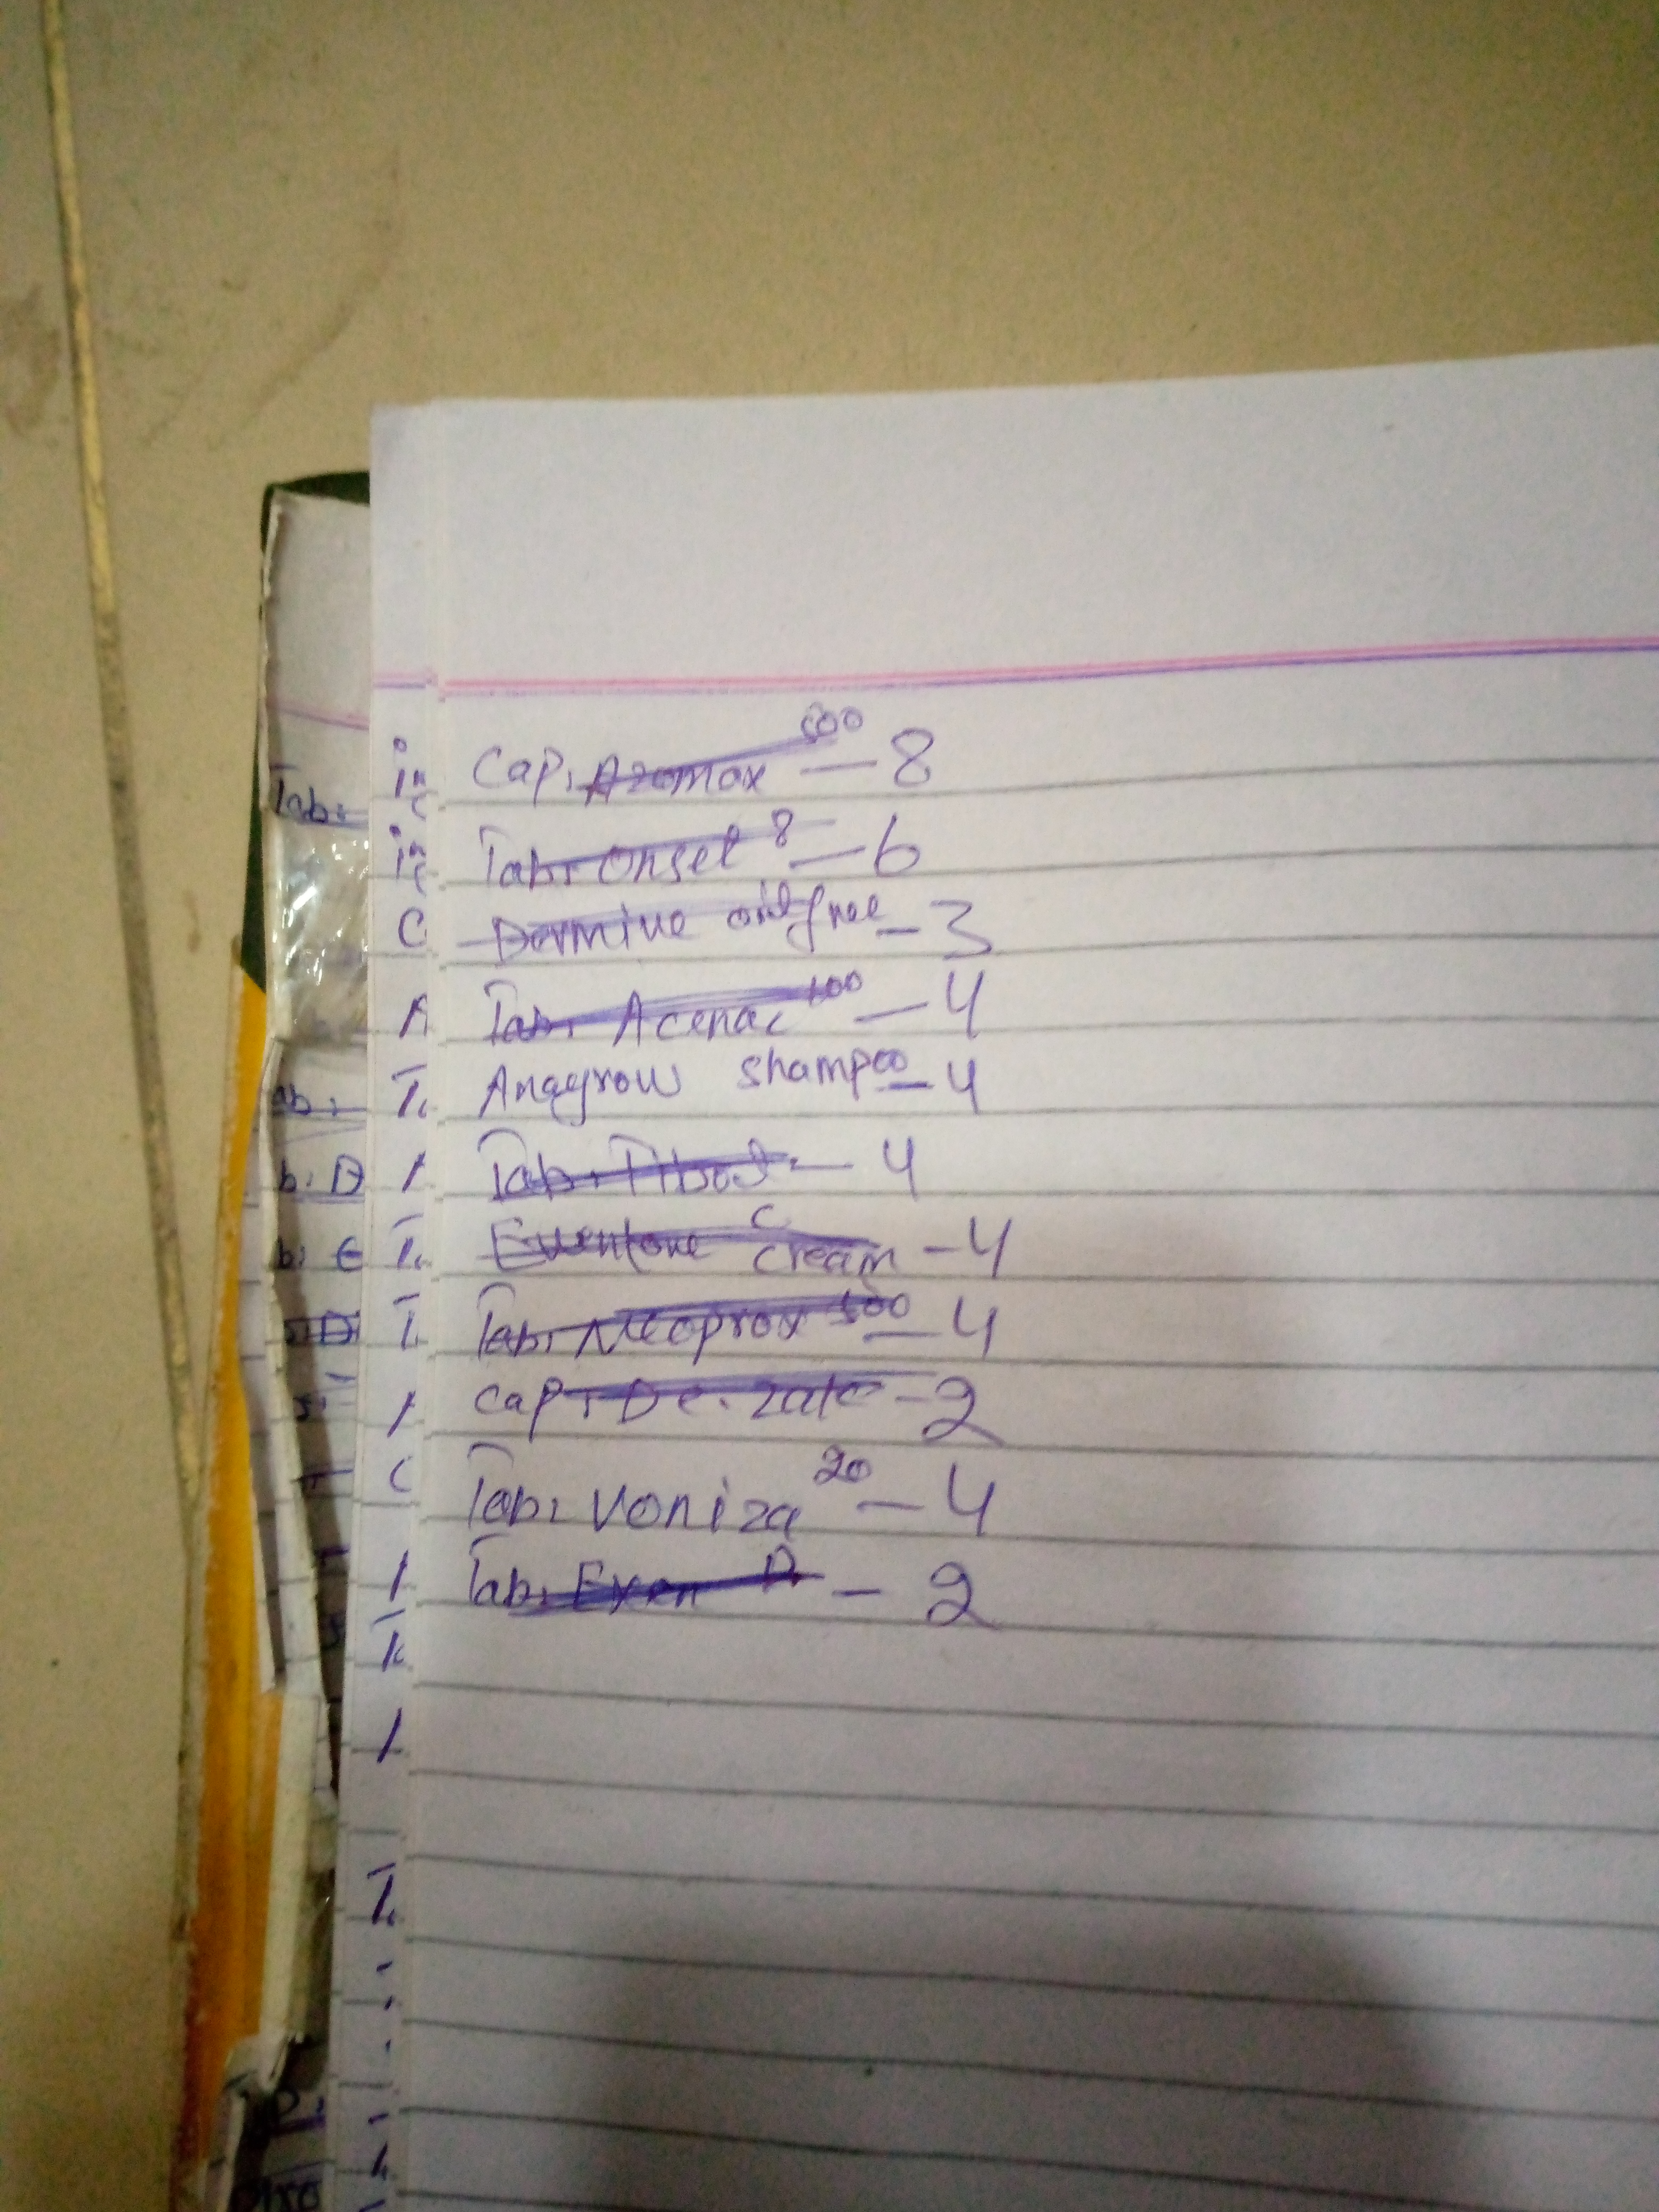 Cap. Azomax 500 - 8
Tab. Onset 8 - 6
Dermive oil free - 3
Tab. Acenac 100 - 4
Anagrow shampoo - 4
Tab. - 4
Eventone C Cream - 4
Tab. Neoprox 500 - 4
Cap. - 2
Tab. Voniza 20 - 4
Tab. - 2